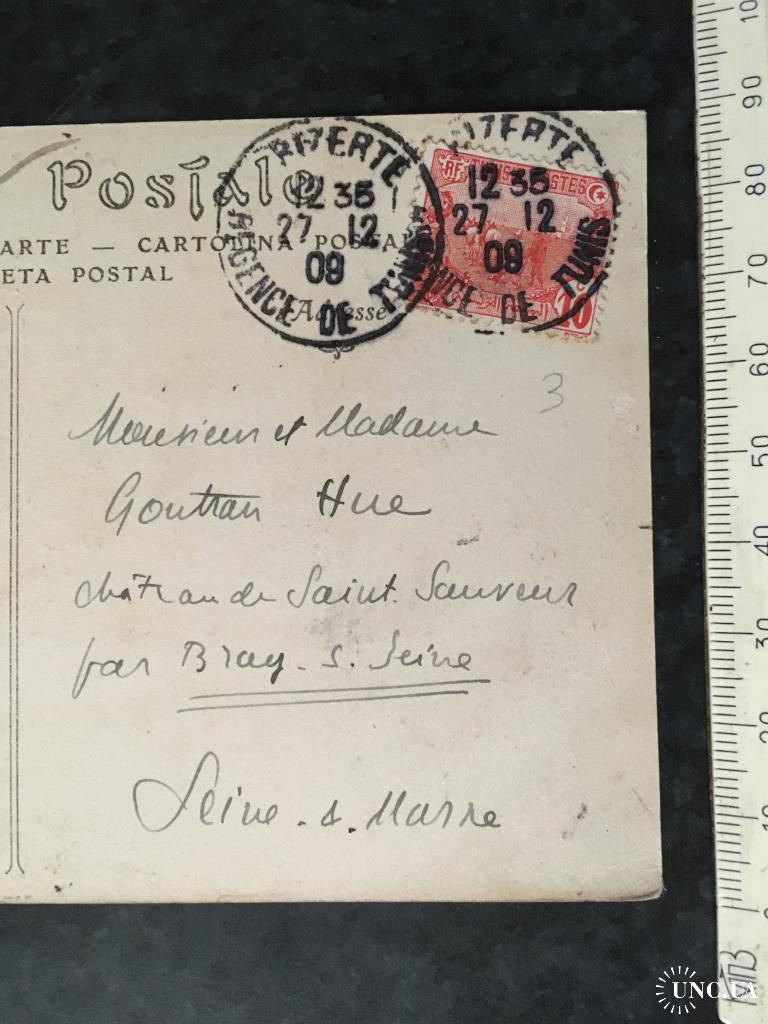 Postale
ARTE — CARTOLINA POSTALE
ETA POSTAL
Adresse
BIZERTE
12 35
27 12
09
REGENCE DE TUNIS
BIZERTE
12 35
27 12
09
REGENCE DE TUNIS
RF TUNIS POSTES
10 c
3
Monsieur et Madame
Gontran Hue
château de Saint. Sauveur
par Bray. s. Seine
Seine. &. Marne
0 10 20 30 40 50 60 70 80 90 10
UNC.UA